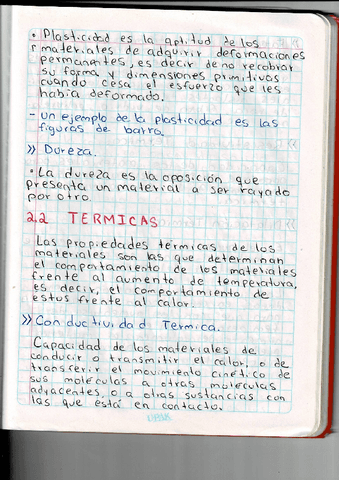 • Plasticidad es la aptitud de los
materiales de adquirir deformaciones
permanentes, es decir de no recobrar
su forma y dimensiones primitivas
cuando cesa el esfuerzo que les
había deformado.
- un ejemplo de la plasticidad es las
figuras de barro.
» Dureza.
• La dureza es la oposición que
presenta un material a ser rayado
por otro.
2.2 TERMICAS
Las propiedades térmicas de los
materiales son las que determinan
el comportamiento de los materiales
frente al aumento de temperatura,
es decir, el comportamiento de
estos frente al calor.
» Conductividad Termica.
Capacidad de los materiales de
conducir o transmitir el calor, o de
transferir el movimiento cinético de
sus moléculas a otras moléculas
adyacentes, o a otras sustancias con
las que está en contacto.